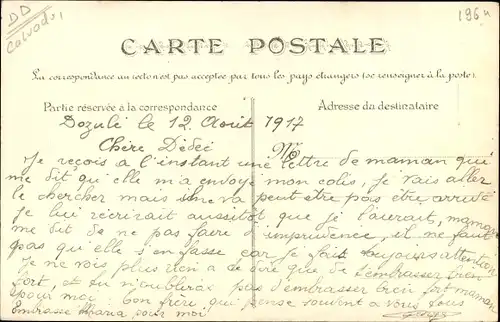 DD
Calvados
1964
CARTE POSTALE
La correspondance au recto n'est pas acceptée par tous les pays étrangers (se renseigner à la poste).
Partie réservée à la correspondance
Adresse du destinataire
Dozulé le 12 Août 1917
Chère Dédée
M
Je reçois à l'instant une lettre de maman qui
me dit qu'elle m'a envoyé mon colis, je vais aller
le chercher mais il ne va peut être pas être arrivé
je lui écrirait aussitôt que je l'aurait, maman
me dit de ne pas faire d'imprudence, il ne faut
pas qu'elle s'en fasse car je fait toujours attention
Je ne vois plus rien a te dire que de t'embrasser bien
fort, et tu n'oublira pas d'embrasser bien fort maman
pour moi. Ton frère qui pense souvent a vous tous
Embrasse Maria pour moi